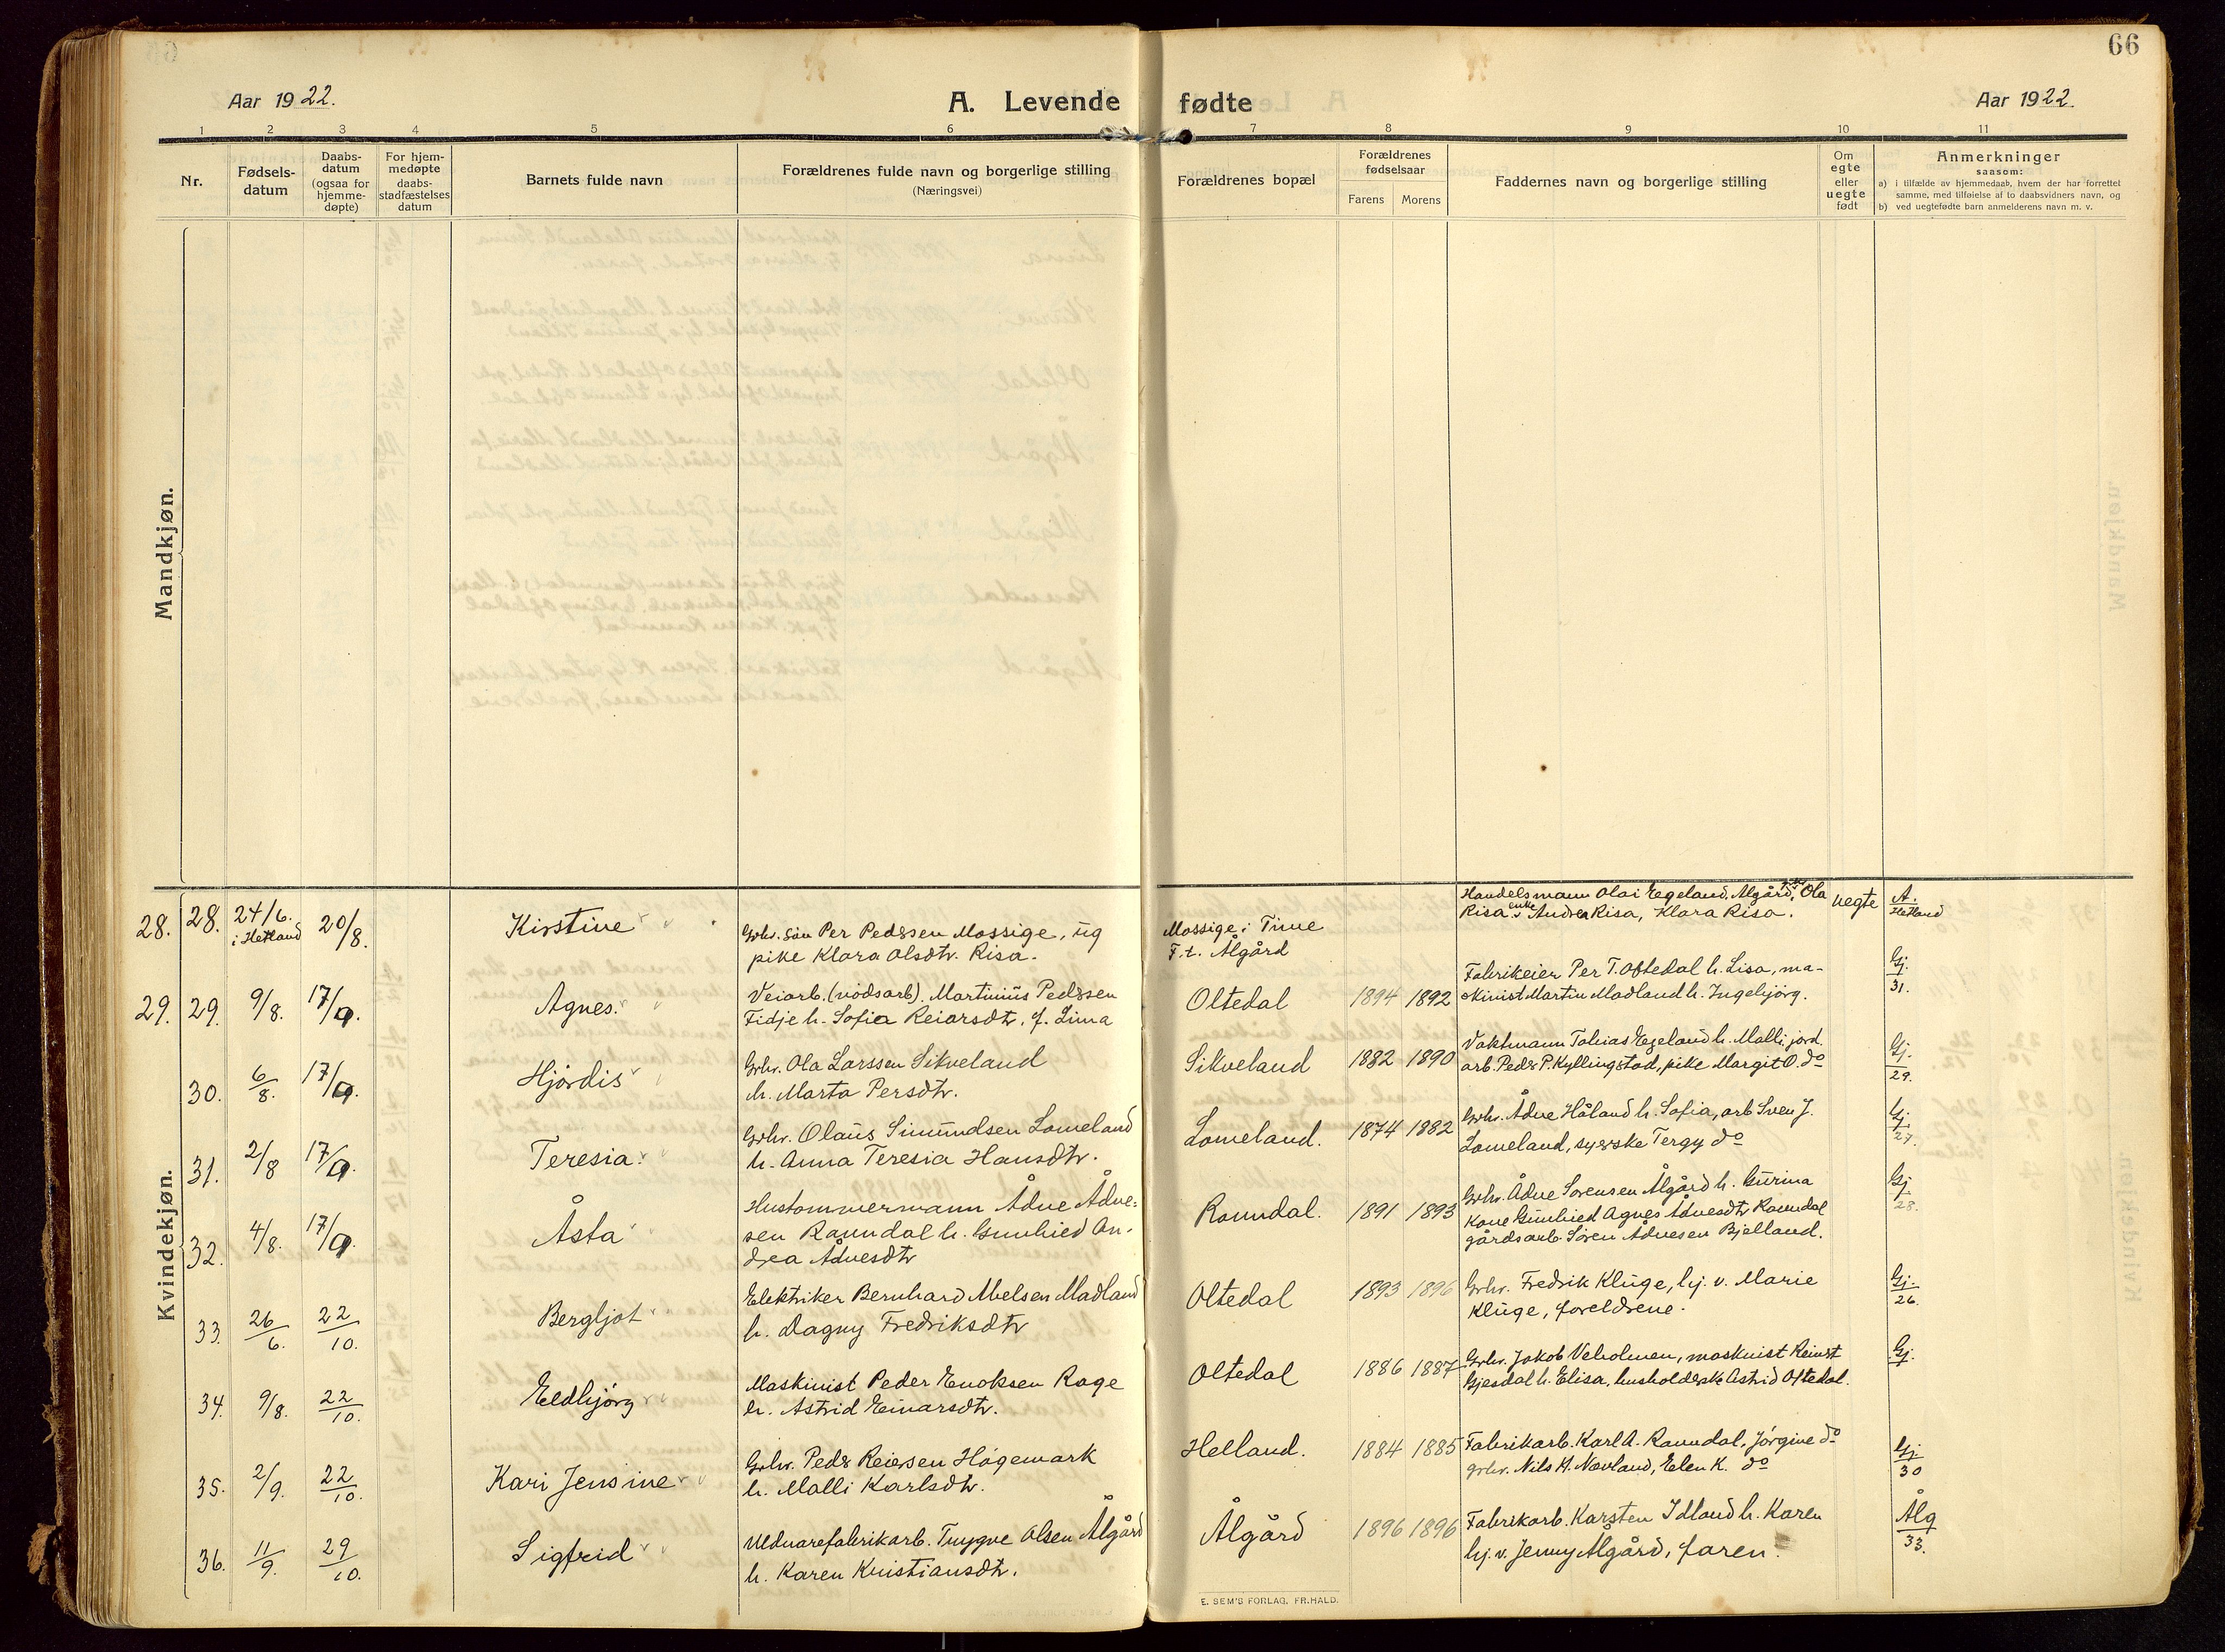 66
Aar 1922.
A. Levende fødte
Aar 1922.
1 2 3 4 5 6 7 8 9 10 11
Nr.
Fødsels-
datum
Daabs-
datum
(ogsaa for
hjemme-
døpte)
For hjem-
medøpte
daabs-
stadfæstelses
datum
Barnets fulde navn
Forældrenes fulde navn og borgerlige stilling
(Næringsvei)
Forældrenes bopæl
Forældrenes
fødselsaar
Farens Morens
Faddernes navn og borgerlige stilling
Om
egte
eller
uegte
født
Anmerkninger
saasom:
a) i tilfælde av hjemmedaab, hvem der har forrettet
samme, med tilføielse af to daabsvidners navn, og
b) ved uegtefødte barn anmelderens navn m. v.
Mandkjøn.
Kvindekjøn.
28. 28. 24/6. i Hetland 20/8. Kirstine
Grbr. søn Per Pedersen Mossige, ug
pike Klara Olsdtr. Risa.
Mossige i Time
F.t. Ålgård
Handelsmann Olai Egeland, Ålgård, Ola
Risa enke Andrea Risa, Klara Risa.
uegte
A.
Hetland
29. 29. 9/8. 17/9. Agnes
Veiarb. (nödsarb). Martinius Pedersen
Fidje h. Sofia Reiarsdtr. f. Lima
Oltedal 1894 1892
Fabrikeier Per T. Oftedal h. Lisa, ma-
skinist Martin Madland h. Ingebjörg.
Gj.
31.
30. 6/8. 17/9. Hjördis
Grbr. Ola Larssen Sikveland
h. Marta Persdtr.
Sikveland 1882 1890
Vaktmann Tobias Egeland h. Malli jord.
arb. Peder P. Kyllingstad, pike Margit O. do
Gj.
29.
31. 2/8 17/9. Teresia
Grbr. Olaus Simundsen Lomeland
h. Anna Teresia Hansdtr.
Lomeland. 1874 1882
Grbr. Ådne Håland h. Sofia, arb Sven J.
Lomeland, syerske Tergy do
Gj
27.
32. 4/8. 17/9. Åsta
Hustømmermann Ådne Ådne-
sen Ravndal h. Gunhild An-
drea Ådnesdtr
Ravndal. 1891 1893
Grbr. Ådne Sorensen Ålgård h. Gurina
Kone Gunhild Agnes Ådnesdtr Ravndal
gårdsarb. Sören Ådnesen Bjelland.
Gj
28.
33. 26/6. 22/10. Bergljot
Elektriker Bernhard Abelsen Madland
h. Dagny Fredriksdtr
Oltedal 1893 1896
Grbr. Fredrik Kluge, hj. v. Marie
Kluge, foreldrene.
Gj.
26.
34. 9/8. 22/10. Eldbjörg
Maskinist Peder Enoksen Rage
h. Astrid Einarsdtr.
Oltedal 1886 1887
Grbr. Jakob Veholmen, maskinist Reinert
Gjesdal h. Elisa, husholderske Astrid Oftedal.
Gj.
35. 2/9. 22/10. Kari Jensine
Grbr. Peder Reiersen Högemark
h. Malli Karlsdtr.
Helland. 1884 1885
Fabrikarb. Karl A. Ravndal, Jörgine do
grbr. Nils H. Nævland, Elen K. do
Gj
30
36. 11/9. 29/10. Sigfrid
Uldvarefabrikarb. Trygve Olsen Ålgård
h. Karen Kristiansdtr.
Ålgård 1896 1896
Fabrikarb. Karsten Idland h. Karen
hj. v. Jenny Ålgård, faren.
Ålg
33.
E. SEM'S FORLAG, FR.HALD.